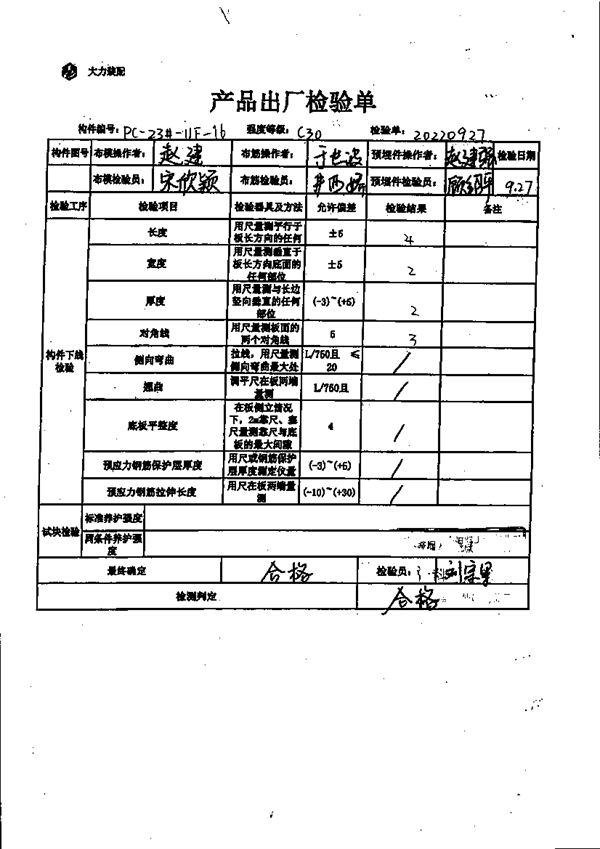 大力装配
产品出厂检验单
构件编号: PC-23#-11F-16 强度等级: C30 检验单: 20220927
构件图号 布模操作者: 赵建 布筋操作者: 预埋件操作者: 检验日期
布模检验员: 宋欣颖 布筋检验员: 预埋件检验员: 9.27
检验工序 检验项目 检验器具及方法 允许偏差 检验结果 备注
构件下线检验
长度 用尺量测平行于板长方向的任何 ±5 4
宽度 用尺量测垂直于板长方向底面的任何部位 ±5 2
厚度 用尺量测与长边竖向垂直的任何部位 (-3)~(+5) 2
对角线 用尺量测板面的两个对角线 5 3
侧向弯曲 拉线，用尺量测侧向弯曲最大处 L/750且 ≤20 /
翘曲 调平尺在板两端量测 L/750且 /
底板平整度 在板侧立情况下，2m靠尺、塞尺量测靠尺与底板的最大间隙 4 /
预应力钢筋保护层厚度 用尺或钢筋保护层厚度测定仪量 (-3)~(+5) /
预应力钢筋拉伸长度 用尺在板两端量测 (-10)~(+30) /
试块检验 标准养护强度
同条件养护强度
最终确定 合格 检验员:
检测判定 合格